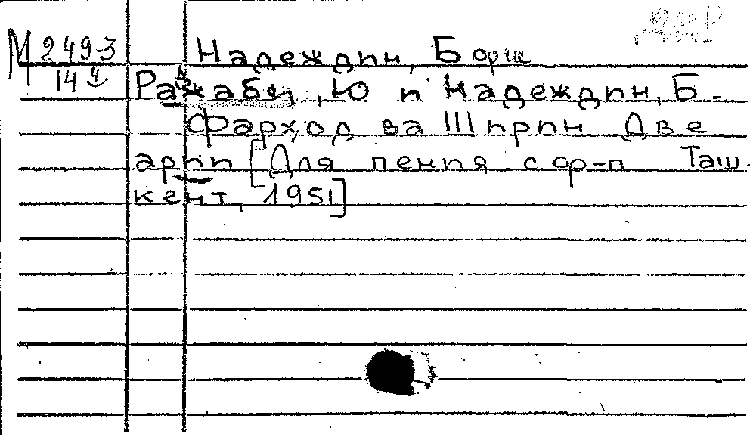 М 249-3
14 ч
Надеждин, Борис
Ражаби, Ю и Надеждин, Б.
Фарход ва Ширин Две
арии [Для пения с ор-п Таш-
кент, 1951]